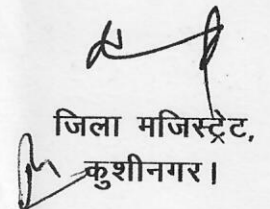 जिला मजिस्ट्रेट,
कुशीनगर।